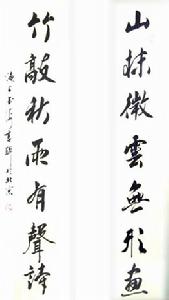 山抹微雲無形画
竹敲秋雨有聲詩